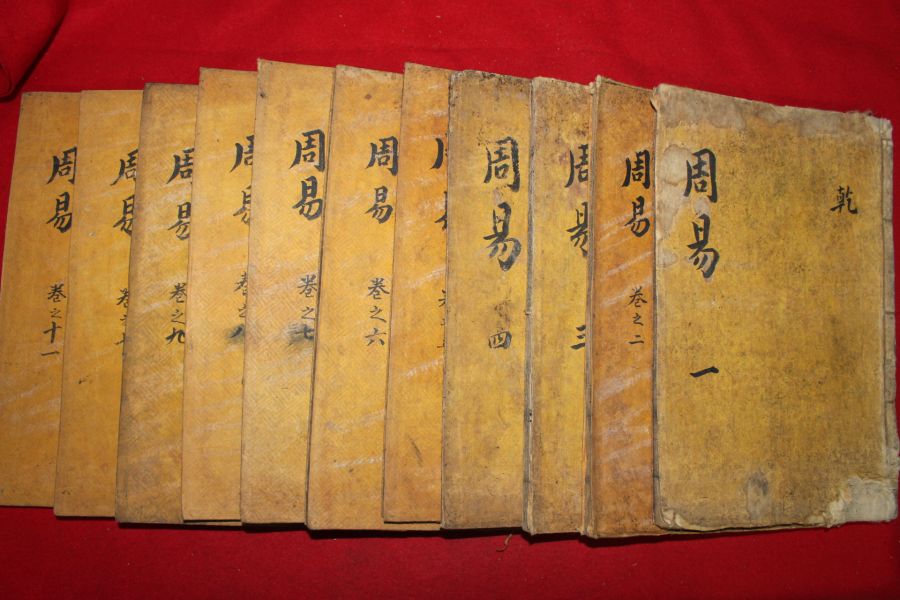 乾
周易 一
周易 卷之二
周易 三
周易 四
周易
周易 卷之六
周易 卷之七
周易 卷之八
周易 卷之九
周易
周易 卷之十一